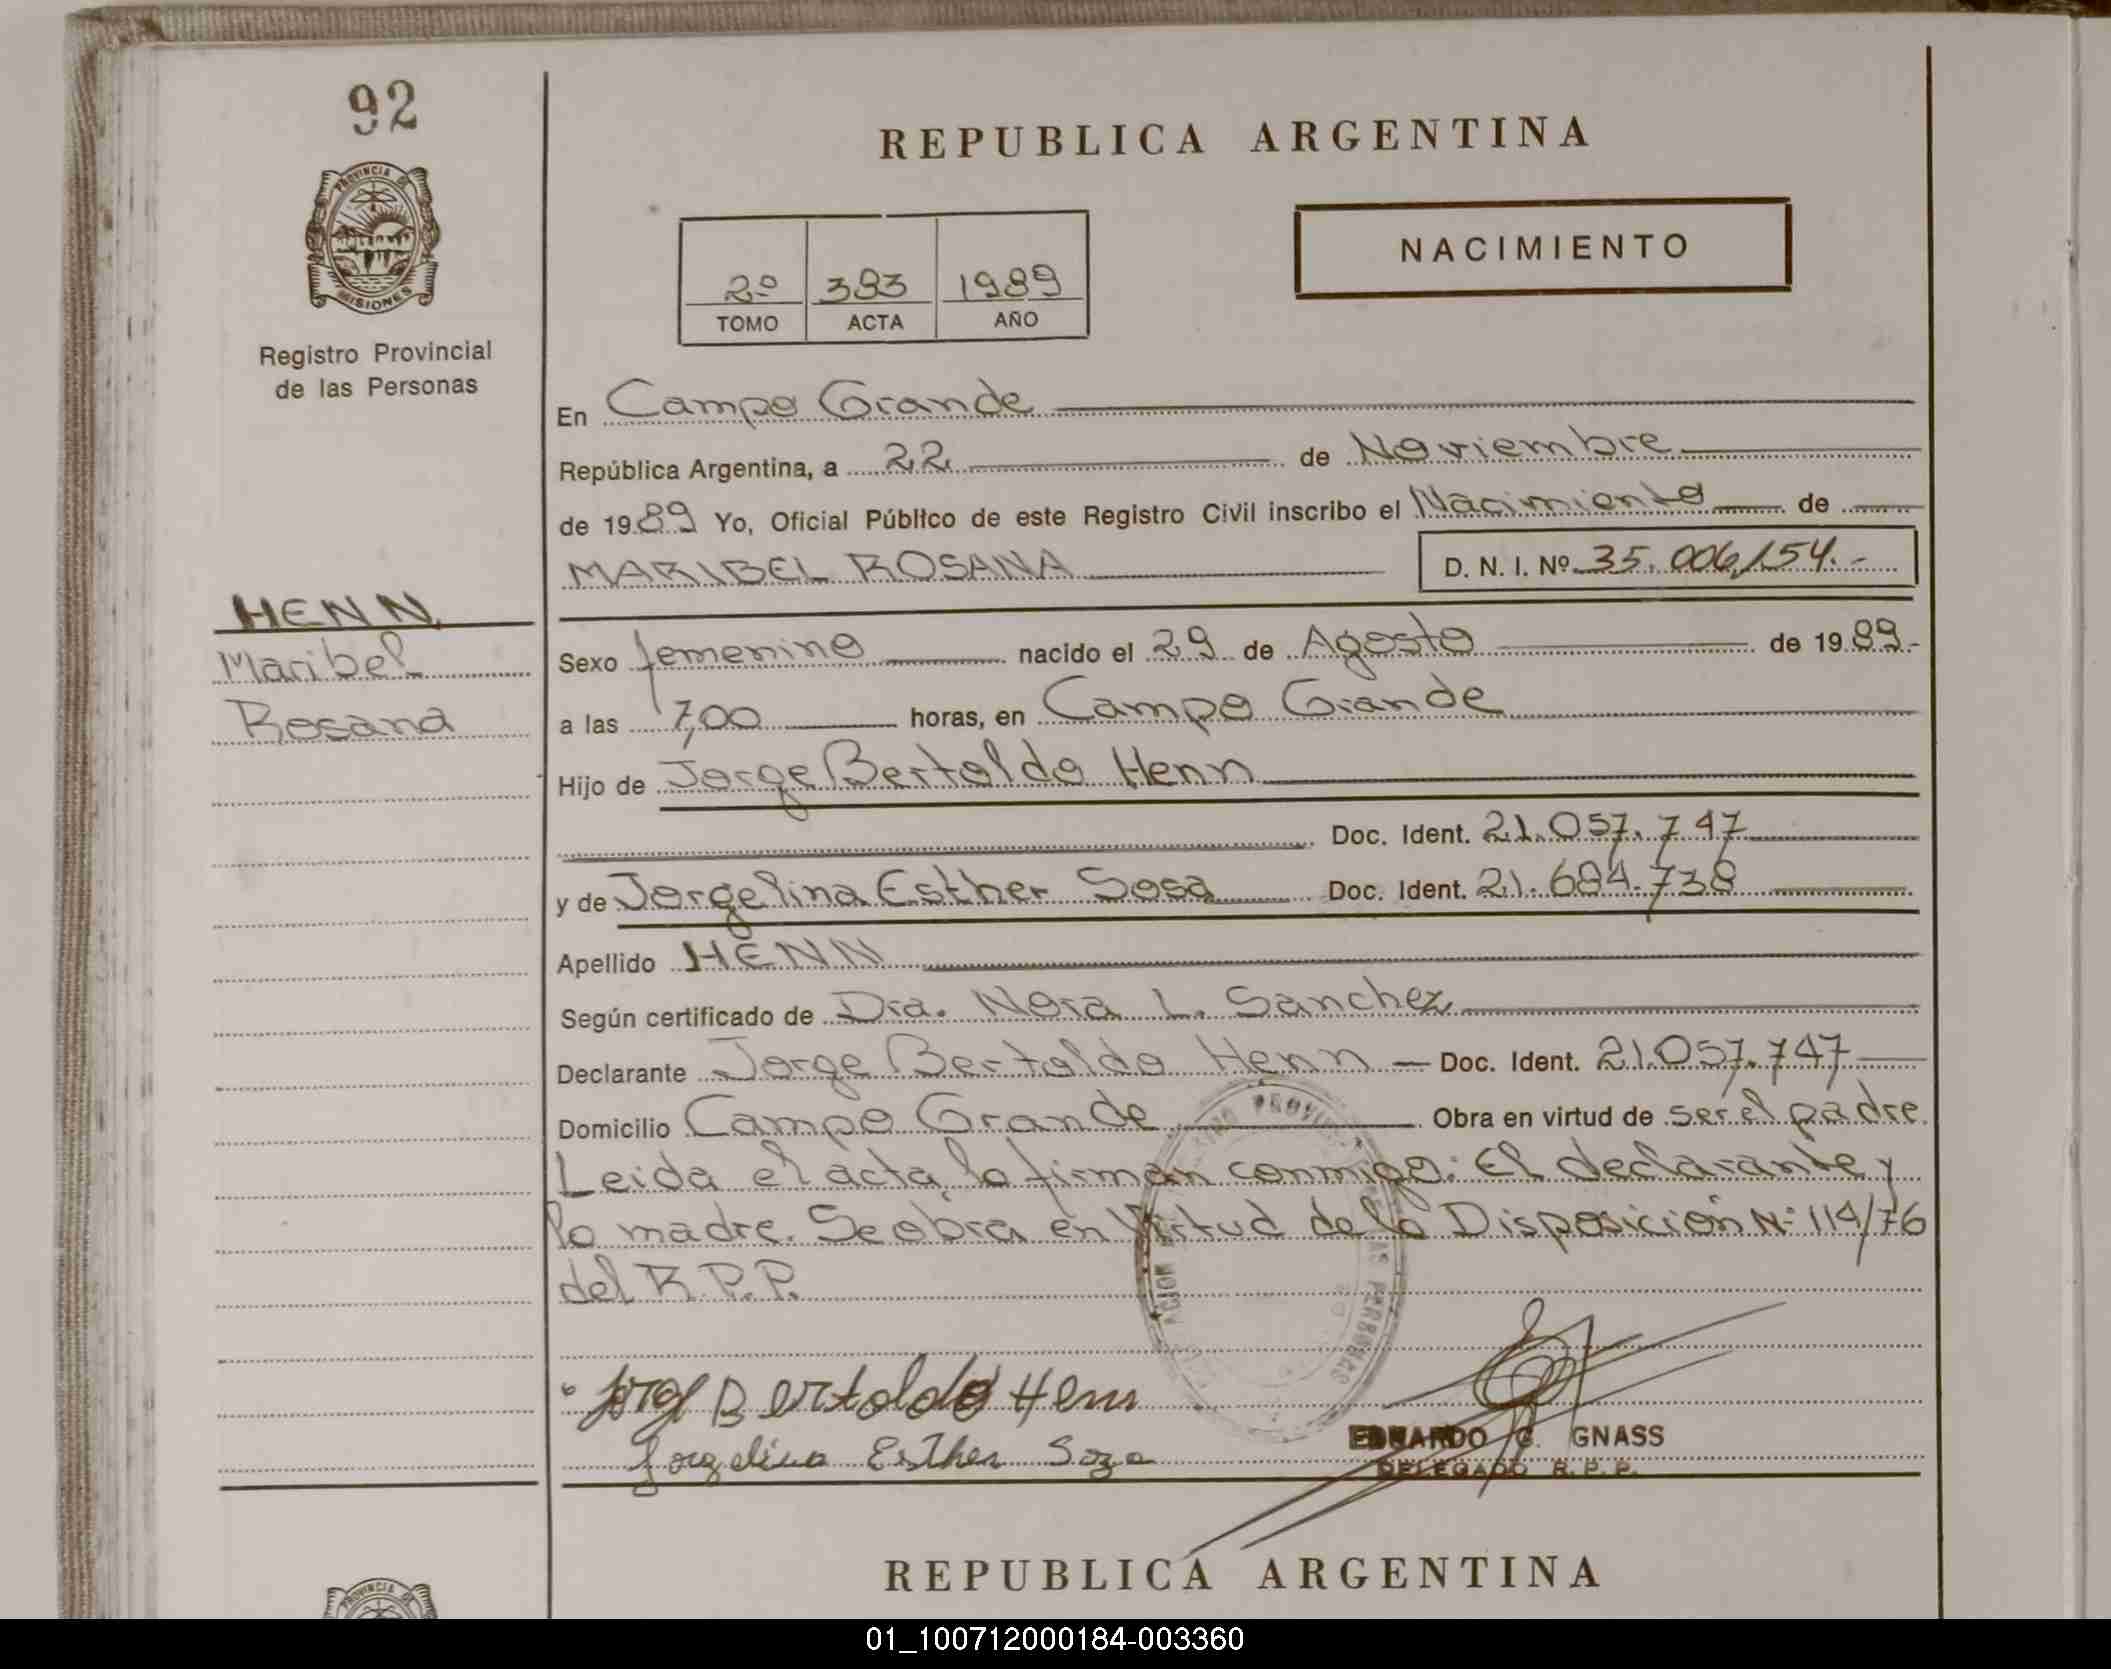 92
PROVINCIA DE
MISIONES
Registro Provincial
de las Personas
HENN
Maribel
Rosana
REPUBLICA ARGENTINA
NACIMIENTO
2º 383 1989
TOMO ACTA AÑO
En Campo Grande
República Argentina, a 22 de Noviembre
de 1989 Yo, Oficial Público de este Registro Civil inscribo el Nacimiento de
MARIBEL ROSANA D. N. I. Nº 35.006,154.-
Sexo femenino nacido el 29 de Agosto de 1989.-
a las 7,00 horas, en Campo Grande
Hijo de Jorge Bertoldo Henn
Doc. Ident. 21.057.747
y de Jorgelina Esther Sosa Doc. Ident. 21.684.738
Apellido HENN
Según certificado de Dra. Nora L. Sanchez
Declarante Jorge Bertoldo Henn — Doc. Ident. 21.057.747
Domicilio Campo Grande Obra en virtud de ser el padre.
Leida el acta, la firman conmigo: El declarante y
la madre. Se obra en Virtud de la Disposición Nº 114/76
del R.P.P.
Jorg Bertoldo Henn
Jorgelina Esther Soza
EDUARDO C. GNASS
DELEGADO R. P. P.
REPUBLICA ARGENTINA
PROVINCIA
01_100712000184-003360